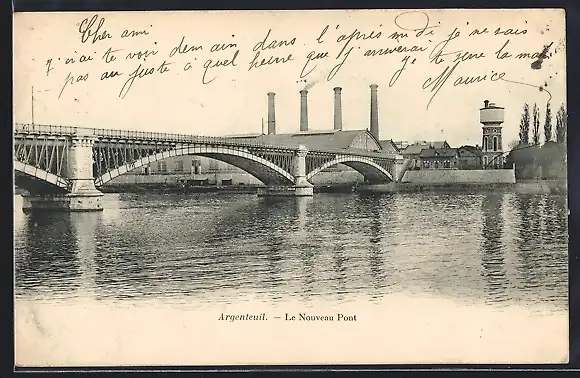 Cher ami
j'irai te voir demain dans l'après midi je ne sais
pas au juste à quel heure que j'y arriverai
je te serre la main
Maurice
Argenteuil. — Le Nouveau Pont